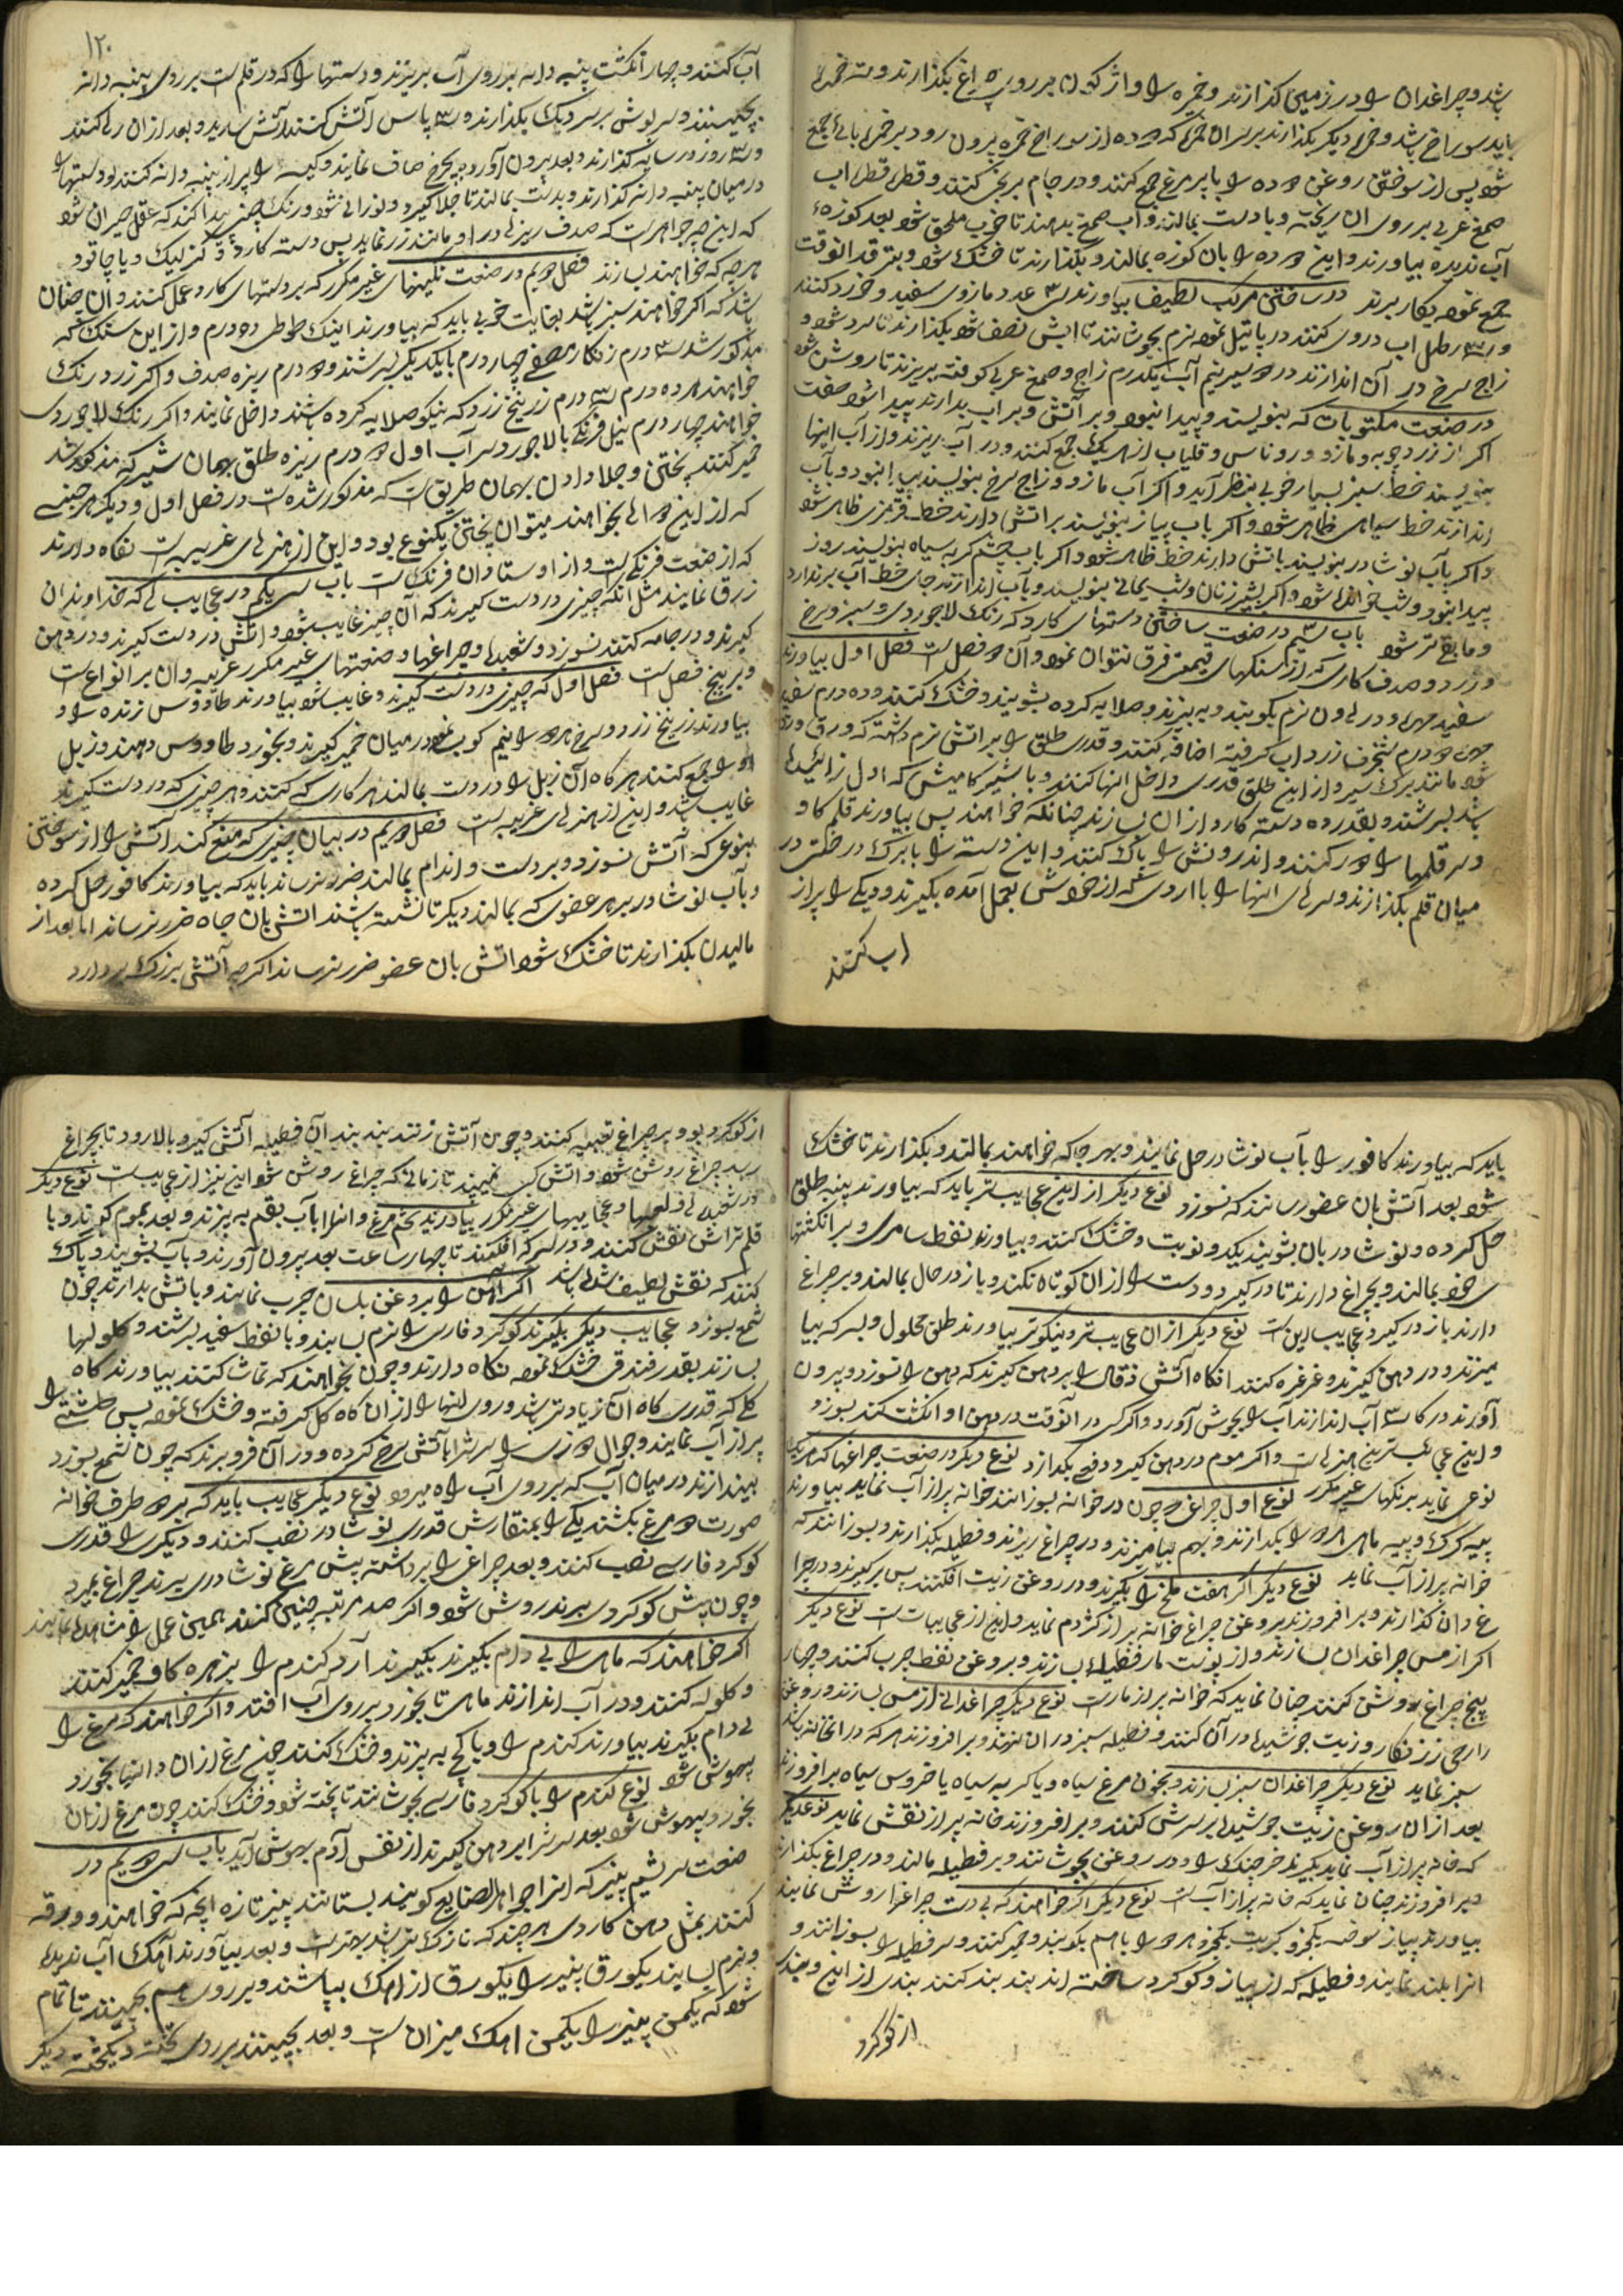 باشد و چراغدان را در زمین گذارند و خمره را واژگون بر روی چراغ بگذارند و ته خمره
باید سوراخ باشد و خمره دیگر بگذارند بر سر آن خمره که دوده از سوراخ خمره بیرون رود بر خمره بالای جمع
شود پس از سوختن روغن دوده را با پر مرغ جمع کنند و در جام بریخن کنند و قطره قطره آب
صمغ عربی بر روی آن ریخته و با دست بمالند و آب صمغ بدهند تا خوب ملحق شود بعد کوزهٔ
آب ندیده بیاورند و این دوده را بان کوزه بمالند و بگذارند تا خشک شود و بتر قد الوقت
جمع نموده بکار برند در ساختن مرکب لطیف بیاورند سی عدد مازوی سفید و خورد کنند
و رطل آب در وی کنند در پاتیل نموده نرم بجوشانند تا آبش نصف شود بگذارند تا سرد شود و
زاج سرخ در آن اندازند در دو سیر نیم آب یکدرم زاج و صمغ عربی کوفته بریزند تا روشن شود
در صنعت مکتوبات که بنویسند و پیدا نبود و بر آتش و بر آب بدارند پیدا شود صفت
اگر از زردچوبه و مازو و روناس و قلیاب از هر یک جمع کنند و در آب ریزند و از آب اینها
بنویسند خط سبز بسیار خوبی بنظر آید و اگر آب مازو و زاج سرخ بنویسند پیدا نبود و بآب
اندازند خط سیاهی ظاهر شود و اگر باب پیاز بنویسند بر آتش دارند خط قرمزی ظاهر شود
و اگر بآب نوشادر بنویسند باتش دارند خط ظاهر شود و اگر باب چشم گربه سیاه بنویسند روز
پیدا نبود و شب خواندنی شود و اگر بشیر زنان و شب یمانی بنویسند و بآب اندازند جای خط آب برندارد
و مابقی تر شود باب سیم در صنعت ساختن دستهای کارد که رنگ لاجوردی و سبز و سرخ
و زرد و صدف کاری که از سنگهای قیمتی فرق نتوان نمود و آن دو فصل است فصل اول بیاورند
سفید مهره و در هاون نرم بکوبند و به بیزند و صلایه کرده بشویند و خشک کنند و ده درم سفید
مهره دو درم شنجرف زرد آب گرفته اضافه کنند و قدری طلق را بر آتش نرم داشته که ورق ورق
شود مانند برگ سیر و از این طلق قدری داخل آنها کنند و با شیر گامیش که اول زائیده
باشد بسرشند و بقدر ده دسته کارد از ان بسازند چنانکه خواهند پس بیاورند قلم گاو
و سر قلمها را دور کنند و اندرونش را پاک کنند و این دسته را با برگ درختی در
میان قلم بگذارند و سرهای آنها را با آردی که از خودش بعمل آمده بگیرند و دیگی را پر از
آب کنند
۱۲۰
آب کنند و چهار انگشت پنبه دانه بر روی آب بریزند و دستها را که در قلم است بر روی پنبه دانه
بچینند و سرپوش بر سر دیگ بگذارند و سه پاس آتش کنند آتش شدید و بعد از ان رها کنند
و سه روز در سایه گذارند و بعد بیرون آورده بچرخ صاف نمایند و کیسه را پر از پنبه دانه کنند و دستها را
در میان پنبه دانه گذارند و بدست بمالند تا جلا گیرد و نورانی شود و رنگ چنین پیدا کند که عقل حیران شود
که این چه جواهر است که صدف ریزه در او مانند زر نماید پس دسته کارد و گزلیک و یا چاقو
هرچه که خواهند بسازند فصل دویم در صنعت نگینهای غیر مکرر که بر دستهای کارد عمل کنند و آن چنان
باشد که اگر خواهند سبز باشد بغایت خوبی باید که بیاورند اینک طوطی ده درم و از این سنگ که
مذکور شد سه درم زنگار مصفی چهار درم با یکدیگر بسرشند و دو درم ریزه صدف و اگر زرد رنگ
خواهند هر ده درم سه درم زرنیخ زرد که نیکو صلایه کرده باشند داخل نمایند و اگر رنگ لاجوردی
خواهند چهار درم نیل فرنگی با لاجورد سر آب اول دو درم ریزه طلق بهمان شیر که مذکور شد
خمیر کنند پختن و جلا دادن بهمان طریق است که مذکور شده است در فصل اول و دیگر هر جنسی
که از این دوای بخواهند میتوان پختن یکنوع بود و این از هنرهای غریبه است نگاه دارند
که از صنعت فرنگی است و از اوستادان فرنگ است باب سی یکم در عجایب هائی که خداوندان
زرق نمایند مثل آنکه چیزی در دست گیرند که آن چیز غایب شود و آتش در دست گیرند و در دهن
گیرند و در جامه کنند نسوزد و شعبدها و چراغها و صنعتهای غیر مکرر غریبه و آن بر انواع است
و بر پنج فصل است فصل اول که چیزی در دست گیرند و غایب شود بیاورند طاووس زنده را و
بیاورند زرنیخ زرد و سرخ هر دو را نیم کوب نموده در میان خمیر گیرند و بخورد طاووس دهند و زبل
او را جمع کنند هر گاه آن زبل را در دست بمالند هر کاری که کنند و هر چیزی که در دست گیرند
غایب باشد و این از هنرهای غریب است فصل دویم در بیان چیزی که منع کند آتش را از سوختن
بنوعی که آتش نسوزد و بر دست و اندام بمالند ضرر نرساند باید که بیاورند کافور حل کرده
و بآب نوشادر بر هر عضوی که بمالند دیگر تا نشسته باشند آتش بان جاه ضرر نرساند اما بعد از
مالیدن بگذارند تا خشک شود آتش بان عضو ضرر نرساند اگر چه آتش بزرگ بردارد
باید که بیاورند کافور را بآب نوشادر حل نمایند و بهر جا که خواهند بمالند و بگذارند تا خشک
شود بعد آتش بان عضو رسانند که نسوزد نوع دیگر از این عجایبتر باید که بیاورند پنبه طلق
حل کرده و نوشادر بان بشویند یکدو نوبت و خشک کنند و بیاورند نفط سامری و بر انگشتها
ی خود بمالند و بچراغ دارند تا در گیرد و دست را از ان کوتاه نکند و باز در حال بمالند و بر چراغ
دارند باز در گیرد عجایب این است نوع دیگر از ان عجایبتر و نیکوتر بیاورند طلق محلول و بسرکه بیا
میزند و در دهن گیرند و غرغره کنند انگاه آتش ذغال را بر دهن گیرند که دهن را نسوزد و بیرون
آورند در کاسه آب اندازند آب را بجوش آورد و اگر کسی در آنوقت در دهن او انگشت کند بسوزد
و این عجایبترین هنرهاست و اگر موم در دهن گیرد در فی بگدازد نوع دیگر در صنعت چراغها که هر یک
نوعی نماید برنگهای غیر مکرر نوع اول چراغی که چون در خوانه بسوزانند خوانه پر از آب نماید بیاورند
پیه گرگ و پیه ماهی هر دو را بگدازند و بهم بیامیزند و در چراغ ریزند و فطیله بگذارند و بسوزانند که
خوانه پر از آب نماید نوع دیگر اگر هفت ملخ را بگیرند و در روغن زیت افکنند پس بر گیرند و در چرا
غ دان گذارند و بر افروزند بروغن چراغ خوانه پر از گژدم نماید و این از عجایبات است نوع دیگر
اگر از مس چراغدان بسازند و از پوست مار فطیله بسازند و بروغن نفط چرب کنند و چهار
پنج چراغ روشن کنند چنان نماید که خوانه پر از مار است نوع دیگر چراغدانی از مس بسازند و روغن
را رحی زنگار و زیت جوشیده در آن کنند و فطیله سبز در ان نهند و بر افروزند هر که در انخانه باشد
سبز نماید نوع دیگر چراغدان سبز بسازند و بخون مرغ سیاه و یا گربه سیاه یا خروس سیاه بر افروزند
بعد از ان روغن زیت جوشیده بر سرش کنند و بر افروزند خانه پر از نقش نماید نوع دیگر
که خانه پر از آب نماید بگیرند خرچنگ را و در روغن بجوشانند و بر فطیله مالند و در چراغ بگذارند
و بر افروزند چنان نماید که خانه پر از آب است نوع دیگر اگر خواهند که بی دست چراغ را روشن نمایند
بیاورند پیاز سوخته یکجزو کبریت یکجزو هر دو را با هم بکوبند و خمیر کنند و سر فطیله را بسوزانند و
آنرا بلند نمایند و فطیله که از پیاز و گوگرد ساخته اند بند بند کنند بندی از این و بندی
از گوگرد
از گوگرد بود و بر چراغ تعبیه کنند و چون آتش زنند بند بند آن فطیله آتش گیرد و بالا رود تا بچراغ
رسد چراغ روشن شود و آتش کس نبیند تا زمانی که چراغ روشن شود این نیز از عجیب است نوع دیگر
در شعبده ها و لعبها و عجایبهای غیر مکرر بیاورند تخم مرغ و آنرا بآب بقم به پزند و بعد بموم گیرند و با
قلم تراش نقش کنند و در سرکه افکنند تا چهار ساعت بعد بیرون آورند و بآب بشویند و پاک
کنند که نقش لطیف شده باشد اگر آهن را بروغن بلسان چرب نمایند و باتش بدارند چون
شمع بسوزد عجایب دیگر بگیرند گوگرد فارسی را نرم بسایند و با نفط سفید بسرشند و گلولها
بسازند بقدر فندقی خشک نموده نگاه دارند و چون بخواهند که تماشا کنند بیاورند کاه
گلی که قدری کاه آن زیادتر باشد و روی آنها را از ان کاه گل گرفته و خشک نموده پس طشتی را
پر از آب نمایند و جوال دوزی را سرش را باتش سرخ کرده و در آن فرو برند که چون شمع بسوزد
بیندازند در میان آب که بر روی آب راه میرود نوع دیگر عجایب باید که بر دو طرف خوانه
صورت دو مرغ بکشند یکی را بمنقارش قدری نوشادر نصب کنند و دیگری را قدری
گوگرد فارسی نصب کنند و بعد چراغی را برداشته پیش مرغ نوشادری برند چراغ بمیرد
و چون پیش گوگردی برند روشن شود و اگر صد مرتبه چنین کنند همین عمل را مشاهده نمایند
اگر خواهند که ماهی را بی دام بگیرند بگیرند آرد گندم را بزهره گاو خمیر کنند
و گلوله کنند و در آب اندازند ماهی تا بخورد بر روی آب افتد و اگر خواهند که مرغ را
بی دام بگیرند بیاورند گندم را و با گچ به پزند و خشک کنند چون مرغ از ان دانها بخورد
بیهوش شود نوع گندم را با گوگرد فارسی بجوشانند تا پخته شود و خشک کنند چون مرغ از ان
بخورد بیهوش شود بعد سرش را بر دهن گیرند از نفس آدم بهوش آید باب سی دویم در
صنعت سریشم پنیر که آنرا جواهر الصنایع گویند بستانند پنیر تازه انچه که خواهند و ورقه
کنند بمثل دهن کاردی هر چند که نازک تر باشد بهتر است و بعد بیاورند آهک آب ندیده
و نرم بسایند یکورق پنیر را یکورق از آهک بپاشند و بر روی هم بچینند تا تمام
شود که یکمن پنیر را یکمن آهک میزان است و بعد بچینند بر روی تخته و یکتخته دیگر